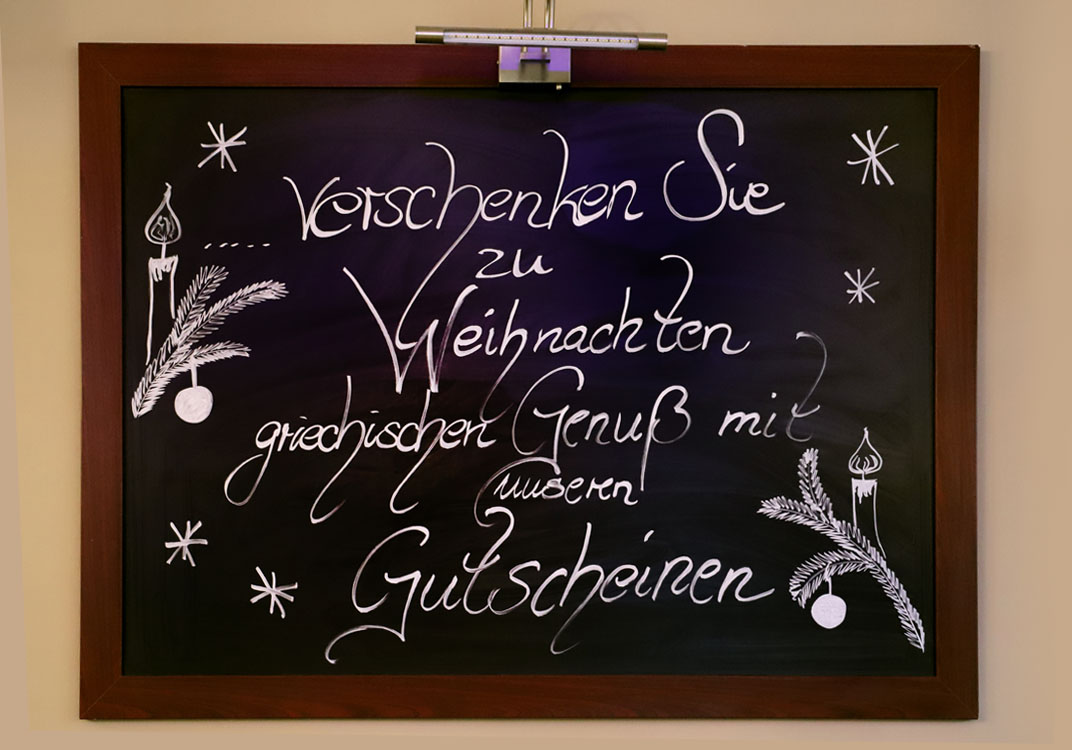 ..... Verschenken Sie
zu
Weihnachten
griechischen Genuß mit
unseren
Gutscheinen